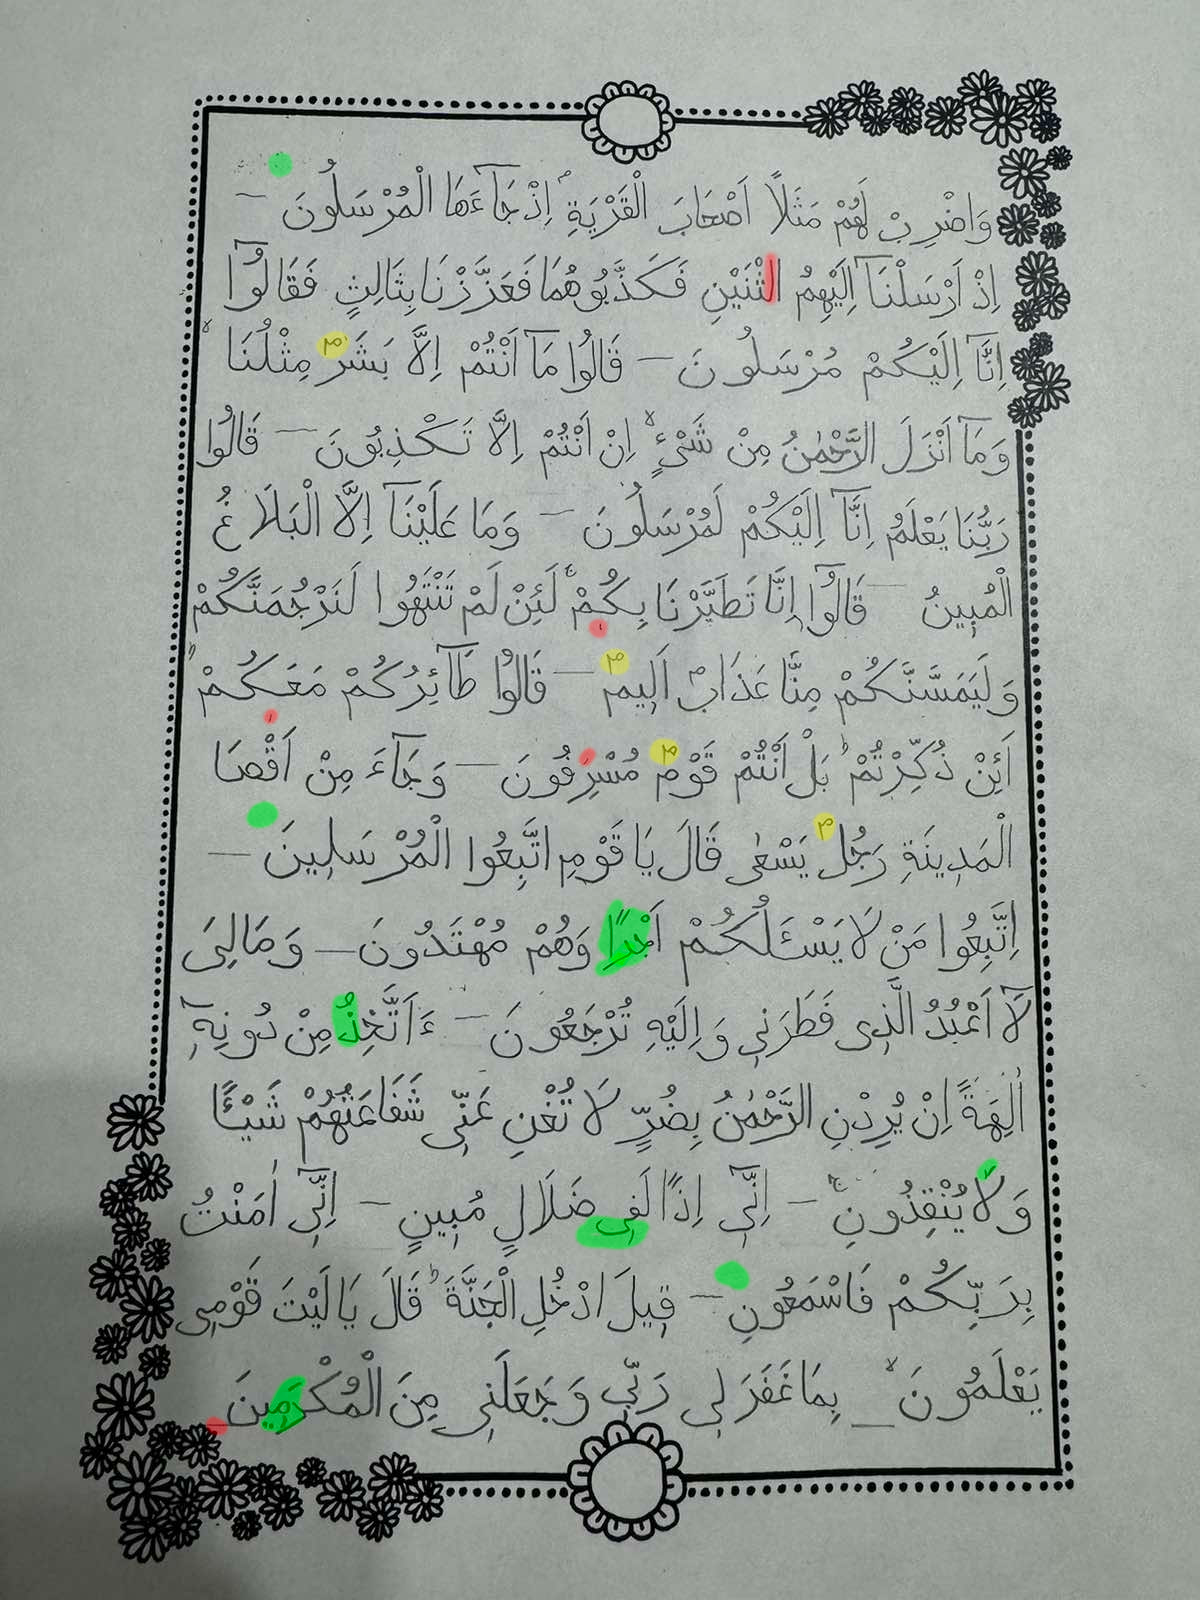 وَاضْرِبْ لَهُمْ مَثَلًا اَصْحَابَ الْقَرْيَةِۢ اِذْ جَٓاءَهَا الْمُرْسَلُونَ –
اِذْ اَرْسَلْنَٓا اِلَيْهِمُ اثْنَيْنِ فَكَذَّبُوهُمَا فَعَزَّزْنَا بِثَالِثٍ فَقَالُٓوا
اِنَّٓا اِلَيْكُمْ مُرْسَلُونَ – قَالُوا مَٓا اَنْتُمْ اِلَّا بَشَرٌ مِثْلُنَاۙ
وَمَٓا اَنْزَلَ الرَّحْمٰنُ مِنْ شَيْءٍۙ اِنْ اَنْتُمْ اِلَّا تَكْذِبُونَ – قَالُوا
رَبُّنَا يَعْلَمُ اِنَّٓا اِلَيْكُمْ لَمُرْسَلُونَ – وَمَا عَلَيْنَٓا اِلَّا الْبَلَاغُ
الْمُبِينُ – قَالُٓوا اِنَّا تَطَيَّرْنَا بِكُمْۚ لَئِنْ لَمْ تَنْتَهُوا لَنَرْجُمَنَّكُمْ
وَلَيَمَسَّنَّكُمْ مِنَّا عَذَابٌ اَلِيمٌ – قَالُوا طَٓائِرُكُمْ مَعَكُمْۜ
اَئِنْ ذُكِّرْتُمْۜ بَلْ اَنْتُمْ قَوْمٌ مُسْرِفُونَ – وَجَٓاءَ مِنْ اَقْصَا
الْمَدِينَةِ رَجُلٌ يَسْعٰى قَالَ يَا قَوْمِ اتَّبِعُوا الْمُرْسَلِينَ –
اِتَّبِعُوا مَنْ لَا يَسْـَٔلُكُمْ اَجْرًا وَهُمْ مُهْتَدُونَ – وَمَا لِيَ
لَٓا اَعْبُدُ الَّذِى فَطَرَنِى وَاِلَيْهِ تُرْجَعُونَ – ءَاَتَّخِذُ مِنْ دُونِهِٓ
اٰلِهَةً اِنْ يُرِدْنِ الرَّحْمٰنُ بِضُرٍّ لَا تُغْنِ عَنِّى شَفَاعَتُهُمْ شَيْـًٔا
وَلَا يُنْقِذُونِۚ – اِنِّٓى اِذًا لَفِى ضَلَالٍ مُبِينٍ – اِنِّٓى اٰمَنْتُ
بِرَبِّكُمْ فَاسْمَعُونِ – قِيلَ ادْخُلِ الْجَنَّةَۜ قَالَ يَا لَيْتَ قَوْمِى
يَعْلَمُونَۙ – بِمَا غَفَرَ لِى رَبِّى وَجَعَلَنِى مِنَ الْمُكْرَمِينَ –